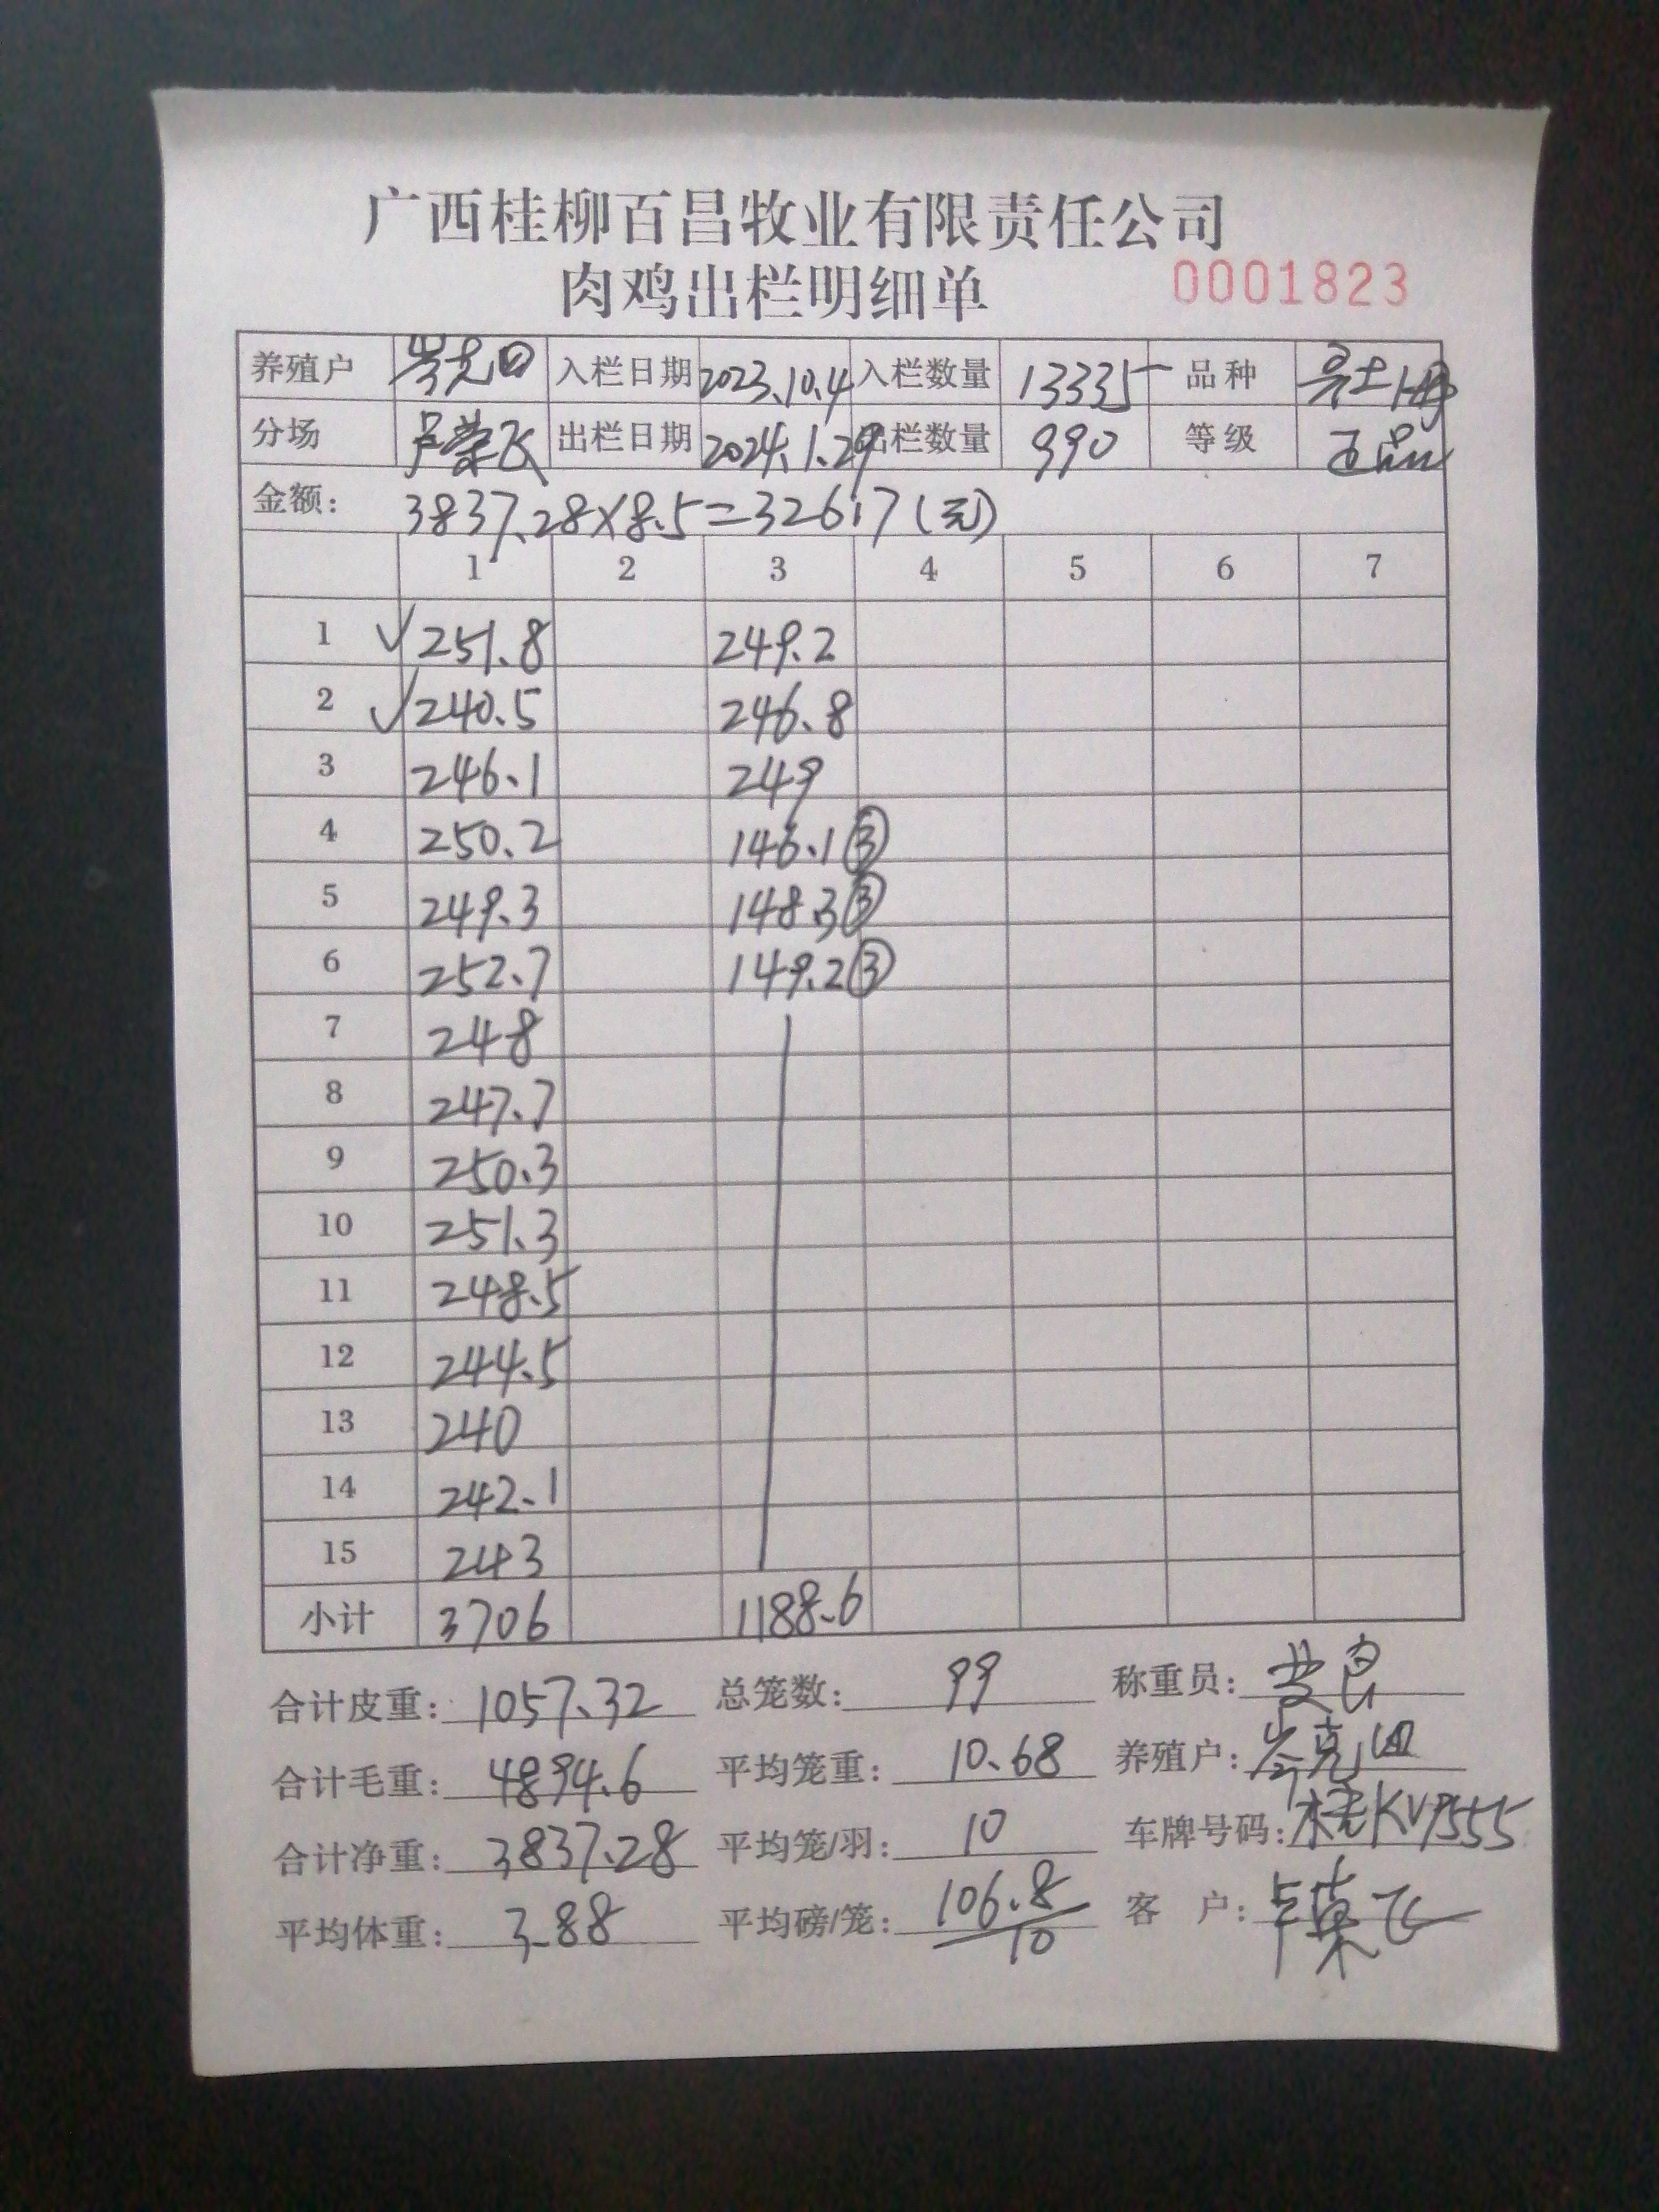 广西桂柳百昌牧业有限责任公司
肉鸡出栏明细单 0001823
养殖户 岑克四 入栏日期 2023.10.4 入栏数量 13335 品种
分场 卢荣飞 出栏日期 2024.1.29 出栏数量 990 等级 正品
金额: 3837.28×8.5=32617(元)
1 2 3 4 5 6 7
1 √251.8 249.2
2 √240.5 246.8
3 246.1 249
4 250.2 146.1③
5 249.3 148.3③
6 252.7 149.2③
7 248
8 247.7
9 250.3
10 251.3
11 248.5
12 244.5
13 240
14 242.1
15 243
小计 3706 1188.6
合计皮重: 1057.32 总笼数: 99 称重员:
合计毛重: 4894.6 平均笼重: 10.68 养殖户: 岑克四
合计净重: 3837.28 平均笼/羽: 10 车牌号码: 桂KV9555
平均体重: 3.88 平均磅/笼: 106.8/10 客 户: 卢荣飞